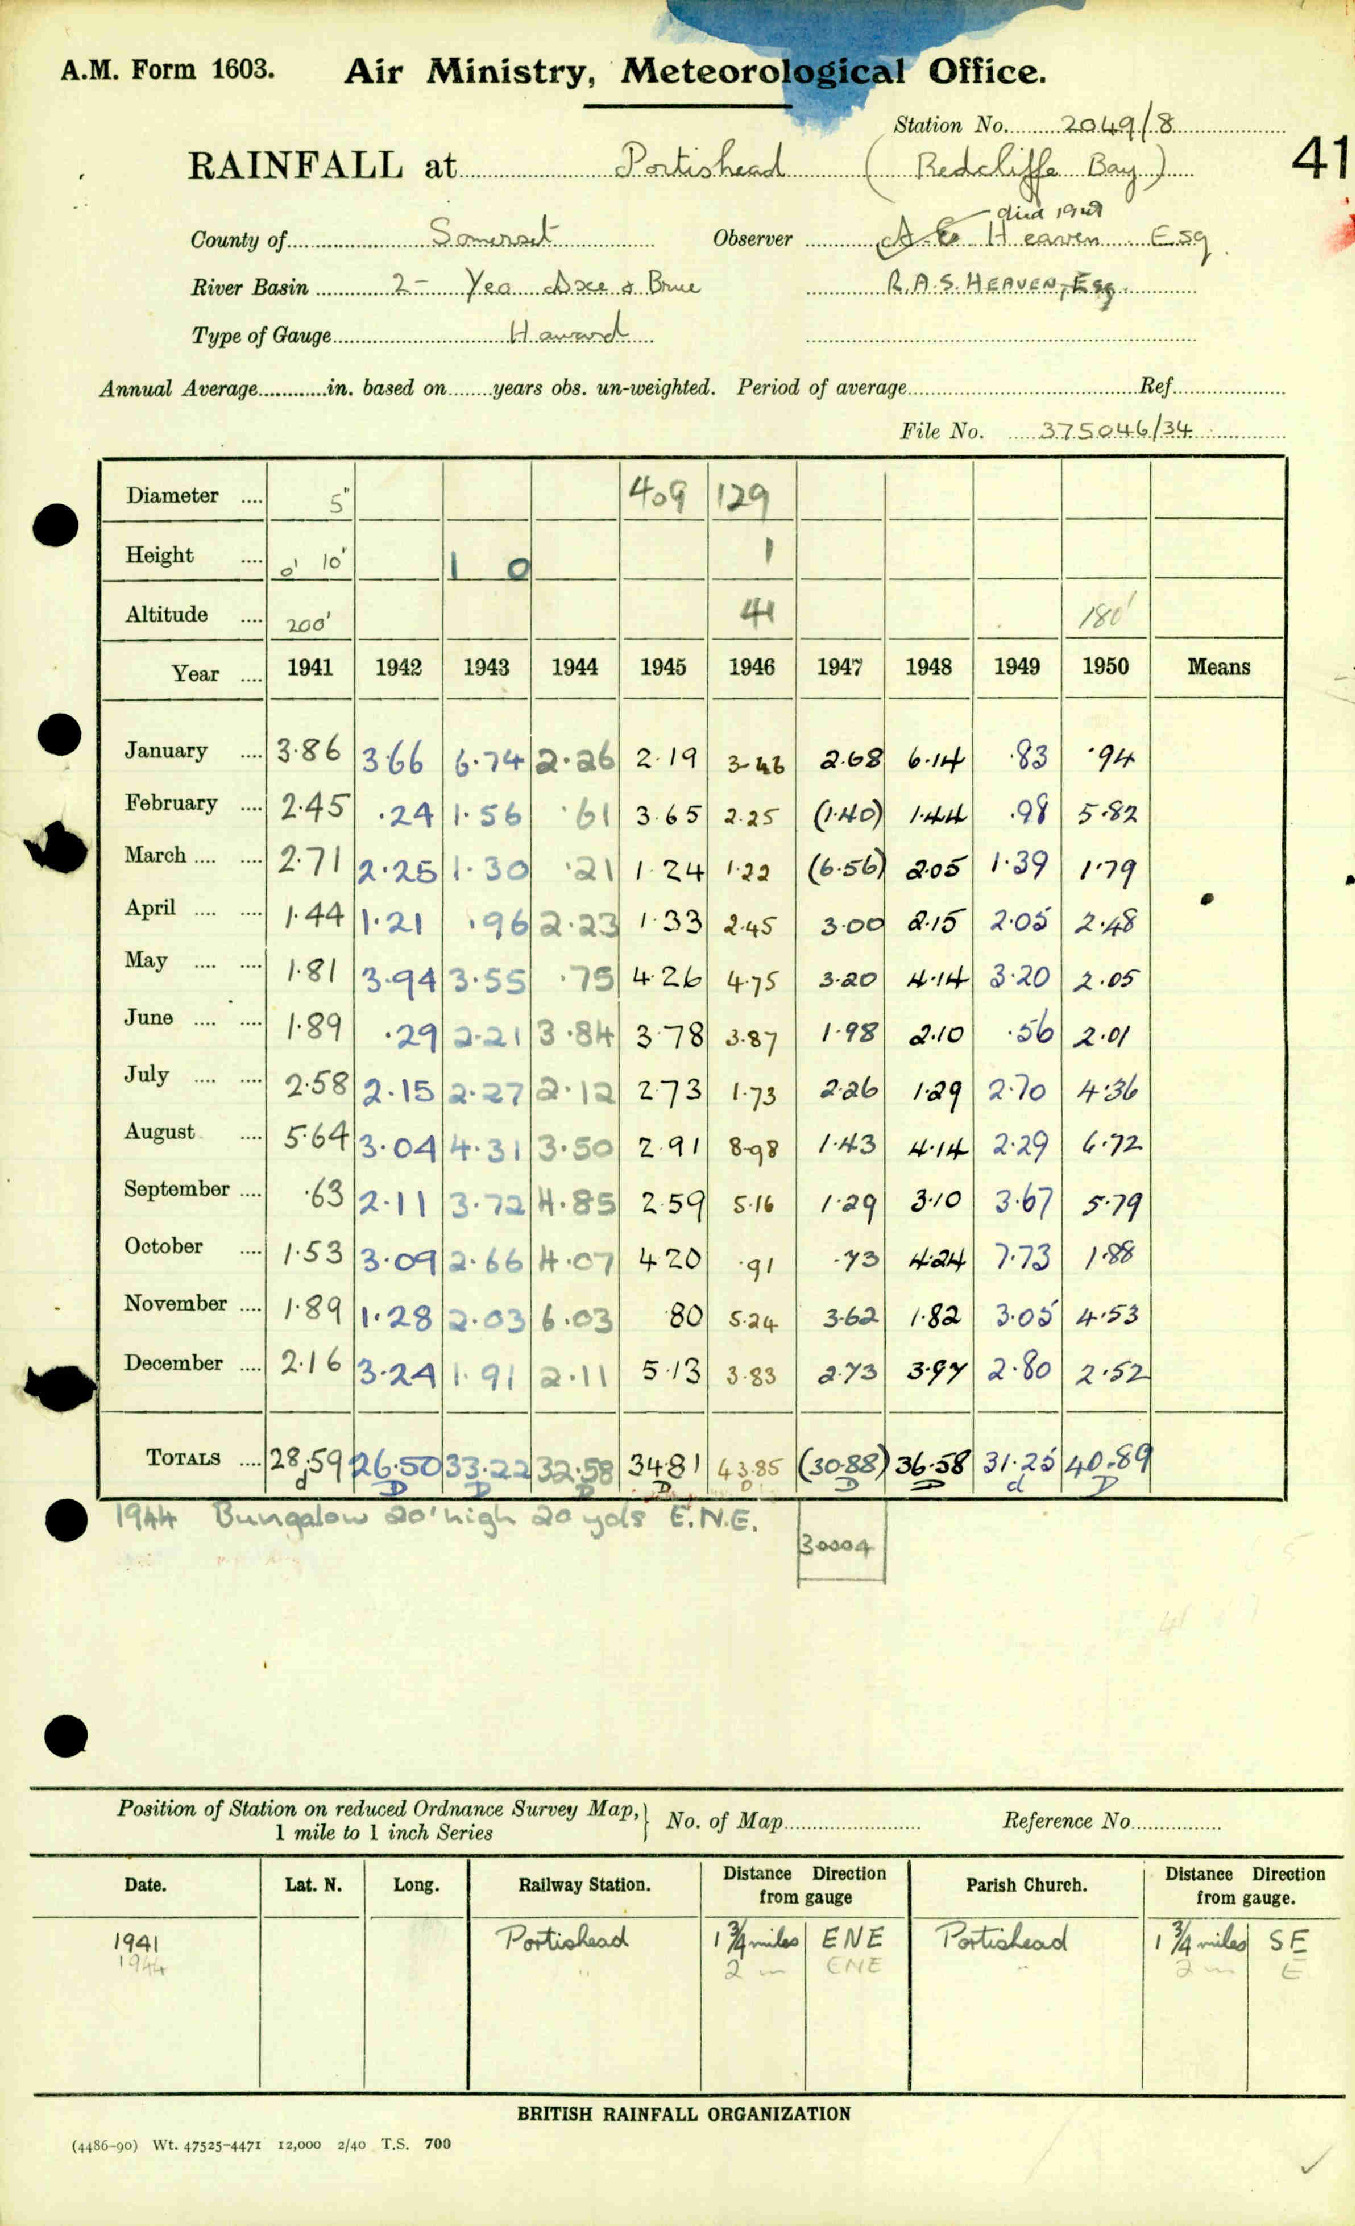 A.M. Form 1603. Air Ministry, Meteorological Office.
Station No. 2049/8
41
RAINFALL at Portishead (Redcliffe Bay)
died 1949
County of Somerset Observer A. E. Heaven Esq.
River Basin 2- Yeo Axe & Brue R.A.S. HEAVEN, Esq.
Type of Gauge Howard
Annual Average in. based on years obs. un-weighted. Period of average Ref.
File No. 375046/34
Diameter 5" 409 129
Height 0' 10" 1 0 1
Altitude 200' 41 180'
Year 1941 1942 1943 1944 1945 1946 1947 1948 1949 1950 Means
January 3.86 3.66 6.74 2.26 2.19 3.46 2.68 6.14 .83 .94
February 2.45 .24 1.56 .61 3.65 2.25 (1.40) 1.44 .98 5.82
March 2.71 2.25 1.30 .21 1.24 1.22 (6.56) 2.05 1.39 1.79
April 1.44 1.21 .96 2.23 1.33 2.45 3.00 2.15 2.05 2.48
May 1.81 3.94 3.55 .75 4.26 4.75 3.20 4.14 3.20 2.05
June 1.89 .29 2.21 3.84 3.78 3.87 1.98 2.10 .56 2.01
July 2.58 2.15 2.27 2.12 2.73 1.73 2.26 1.29 2.70 4.36
August 5.64 3.04 4.31 3.50 2.91 8.98 1.43 4.14 2.29 6.72
September .63 2.11 3.72 4.85 2.59 5.16 1.29 3.10 3.67 5.79
October 1.53 3.09 2.66 4.07 4.20 .91 .73 4.24 7.73 1.88
November 1.89 1.28 2.03 6.03 80 5.24 3.62 1.82 3.05 4.53
December 2.16 3.24 1.91 2.11 5.13 3.83 2.73 3.97 2.80 2.52
TOTALS 28.59 26.50 33.22 32.58 34.81 43.85 (30.88) 36.58 31.25 40.89
d D D D D D D D d D
1944 Bungalow 20' high 20 yds E.N.E.
30004
Position of Station on reduced Ordnance Survey Map, 1 mile to 1 inch Series } No. of Map Reference No.
Date. Lat. N. Long. Railway Station. Distance Direction from gauge Parish Church. Distance Direction from gauge.
1941 Portishead 1 3/4 miles ENE Portishead 1 3/4 miles SE
1944 " 2 m ENE " 2 m E
BRITISH RAINFALL ORGANIZATION
(4486-90) Wt. 47525-4471 12,000 2/40 T.S. 700